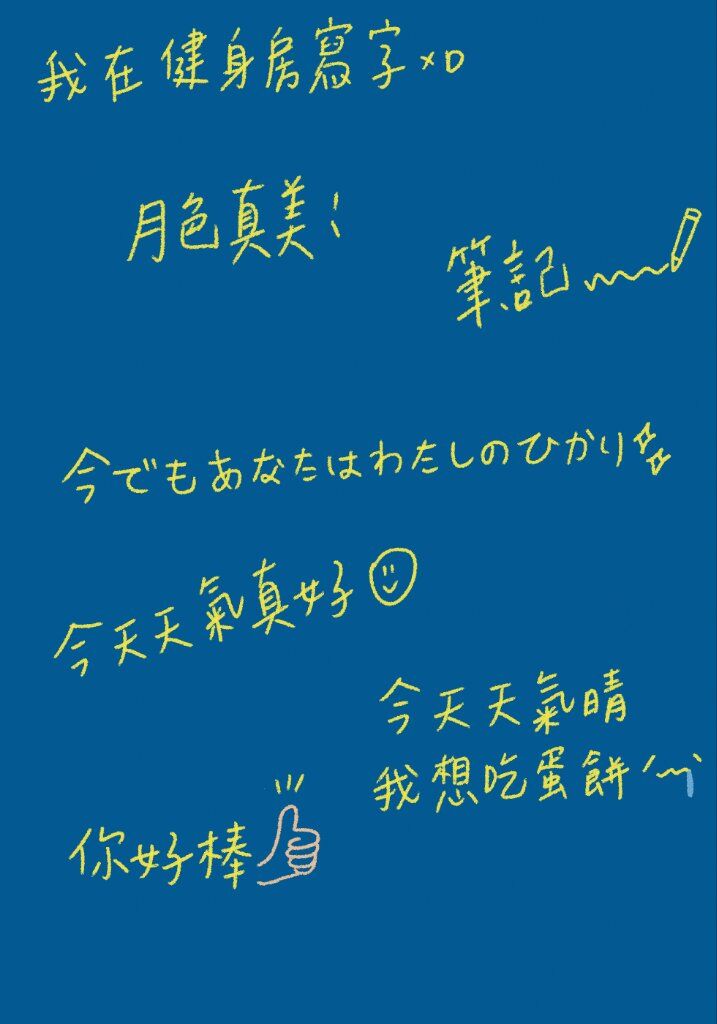 我在健身房寫字xD
月色真美!
筆記
今でもあなたはわたしのひかり
今天天氣真好
今天天氣晴
我想吃蛋餅
你好棒